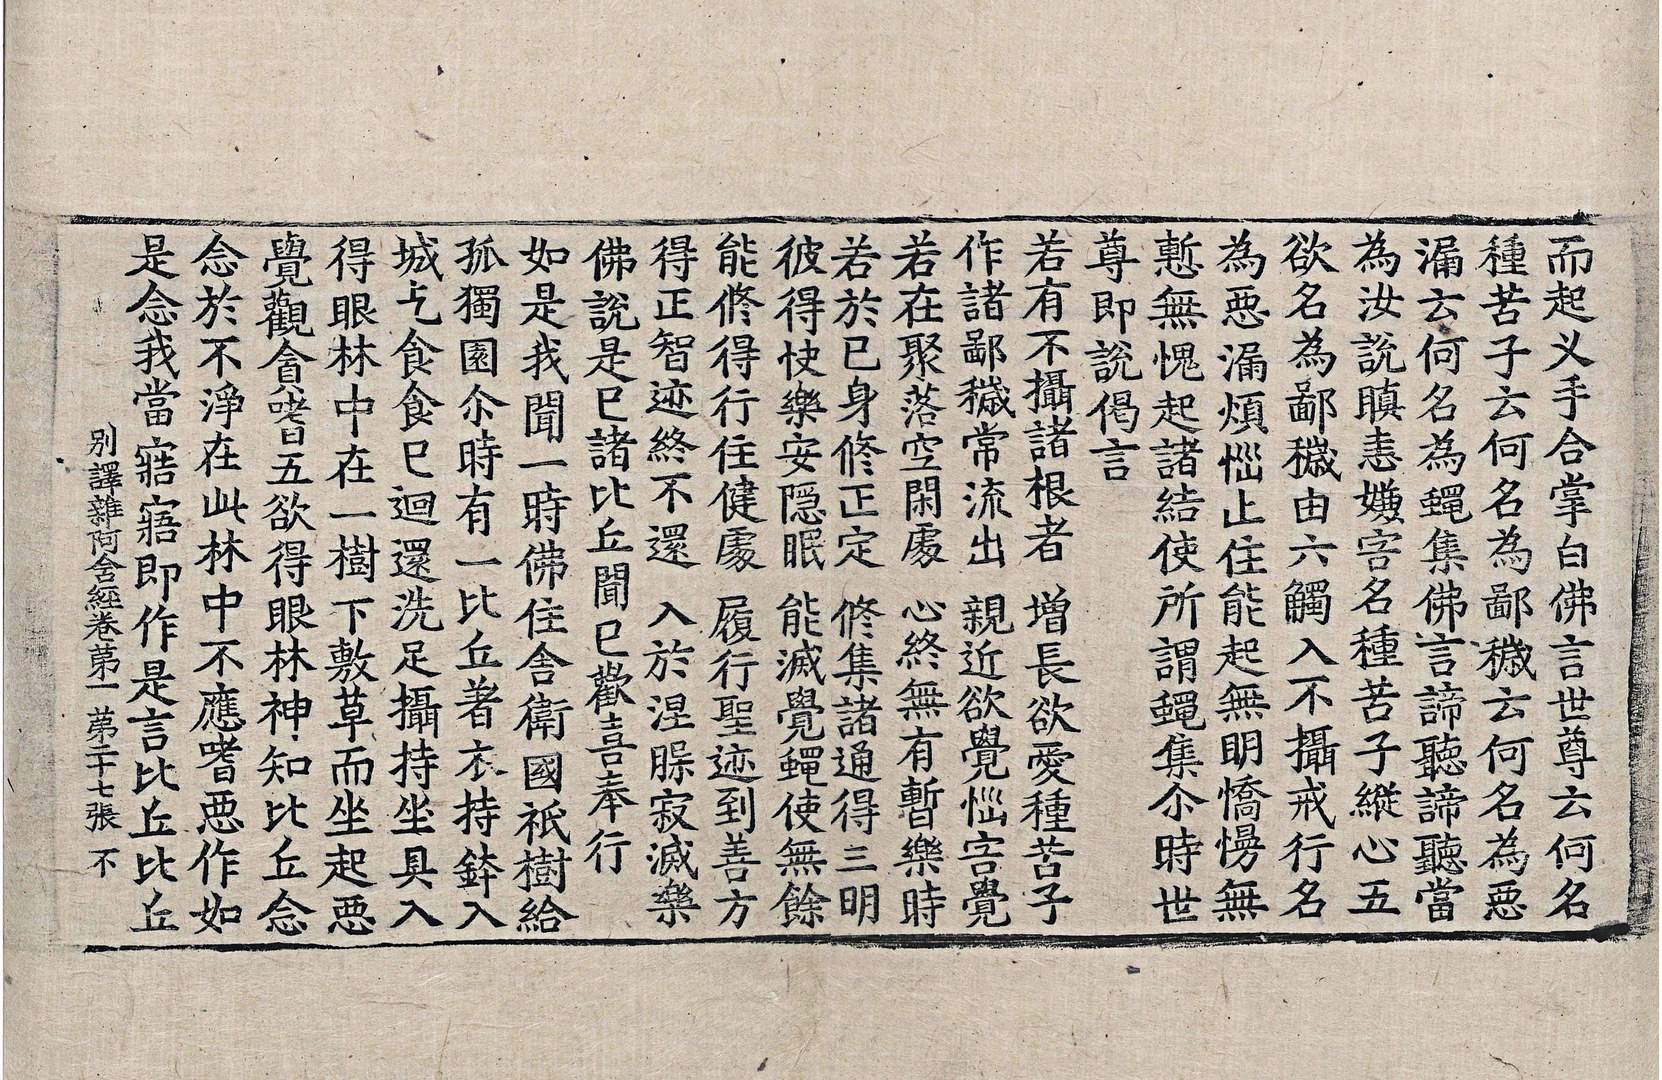 而起义手合掌白佛言世尊云何名
種苦子云何名為鄙穢云何名為惡
漏云何名為蠅集佛言諦聽諦聽當
為汝說瞋恚嫌害名種苦子縱心五
欲名為鄙穢由六觸入不攝戒行名
為惡漏煩惱止住能起無明憍慢無
慙無愧起諸結使所謂蠅集尒時世
尊即說偈言
若有不攝諸根者　增長欲愛種苦子
作諸鄙穢常流出　親近欲覺惱害覺
若在聚落空閑處　心終無有暫樂時
若於己身修正定　修集諸通得三明
彼得快樂安隱眠　能滅覺蠅使無餘
能脩得行住健處　履行聖迹到善方
得正智迹終不還　入於涅槃寂滅樂
佛說是已諸比丘聞已歡喜奉行
如是我聞一時佛住舍衛國祇樹給
孤獨園尒時有一比丘著衣持鉢入
城乞食食已迴還洗足攝持坐具入
得眼林中在一樹下敷草而坐起惡
覺觀貪嗜五欲得眼林神知比丘念
念於不淨在此林中不應嗜惡作如
是念我當寤寤即作是言比丘比丘
別譯雜阿含經卷苐一　苐二十七張　不